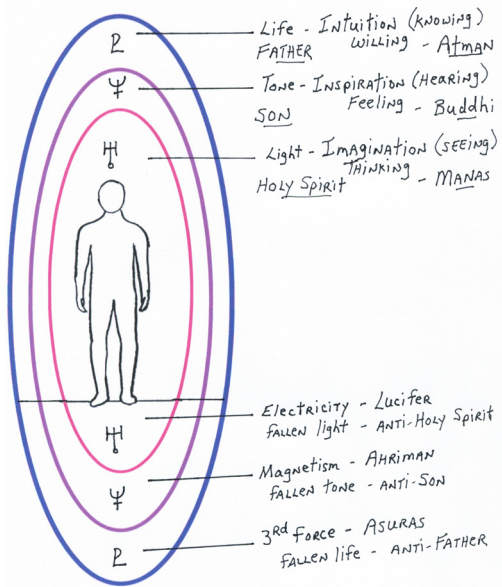 Life - Intuition (KNOWING)
FATHER WILLING - ATMAN
Tone - INSPIRATION (HEARING)
Feeling - Buddhi
SON
Light - IMAGINATION (SEEING)
THINKING
HOLY SPIRIT - MANAS
Electricity - LUCIFER
FALLEN light - ANTI-HOLY SPIRIT
Magnetism - AHRIMAN
FALLEN TONE - ANTI-SON
3RD FORCE - ASURAS
FALLEN life - ANTI-FATHER